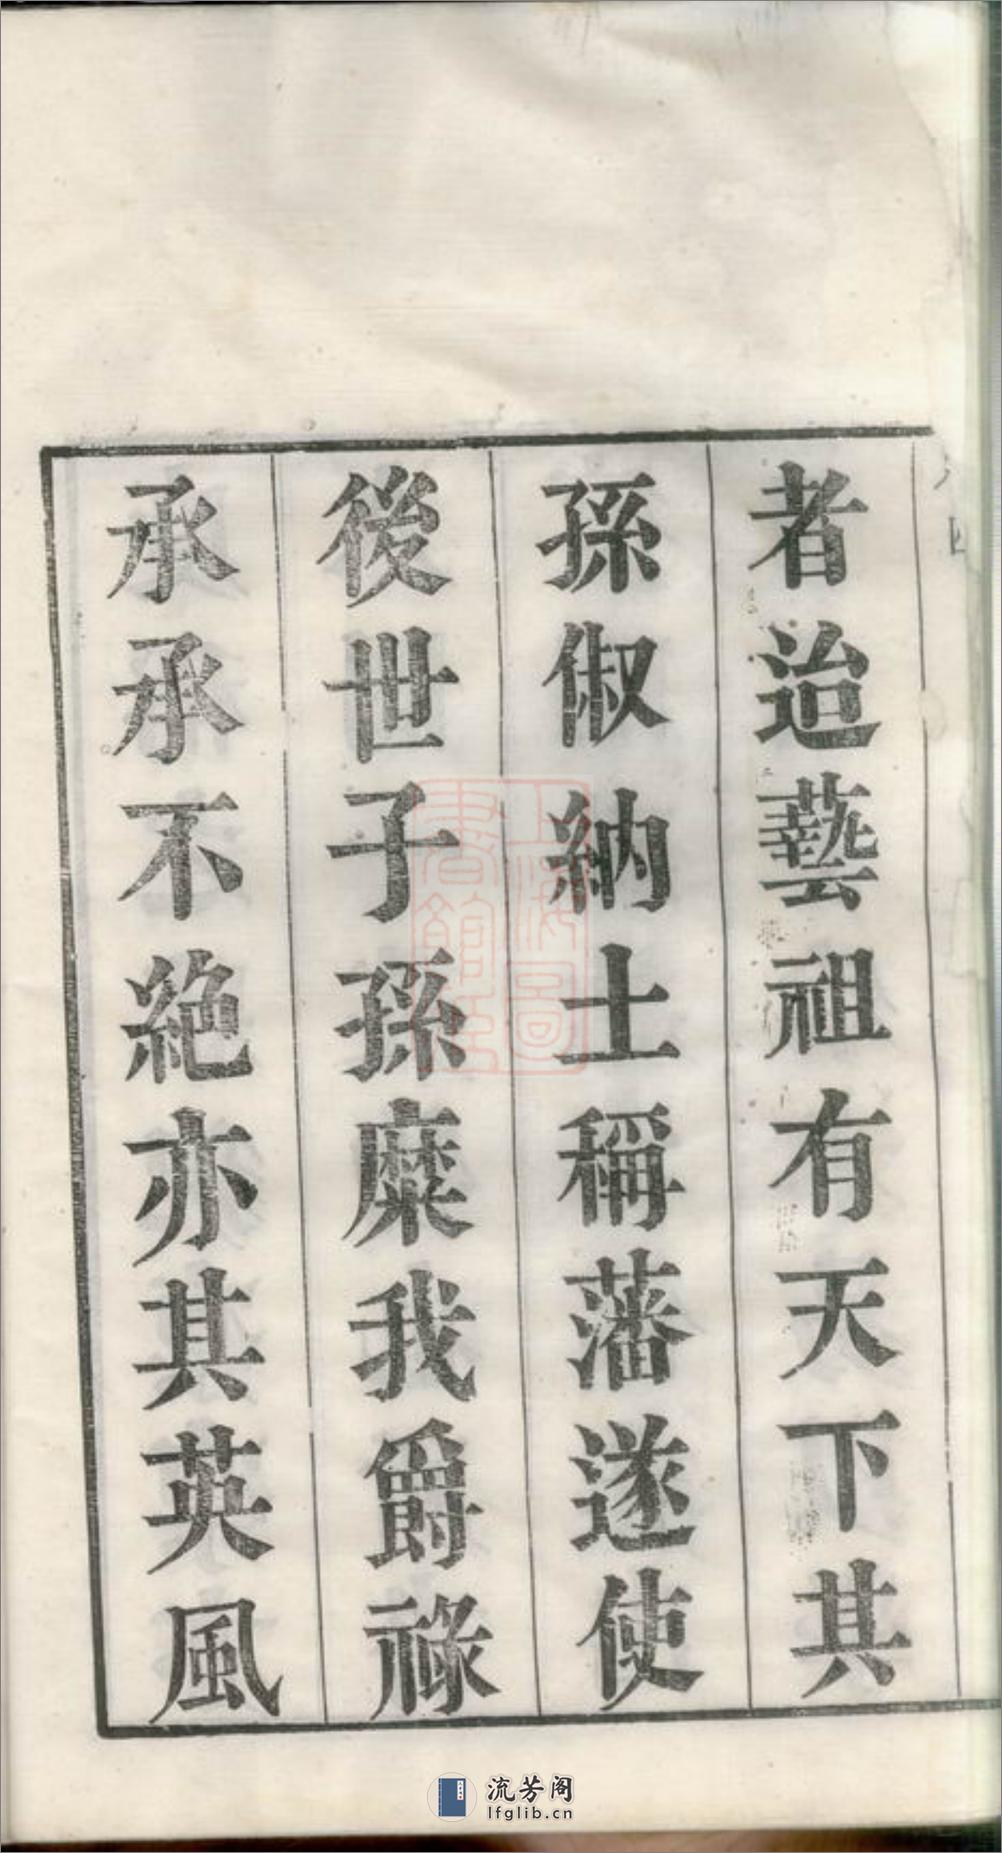 者迨藝祖有天下其
孫俶納土稱藩遂使
後世子孫縻我爵祿
承承不絶亦其英風
上海圖書館藏
流芳阁
lfglib.cn